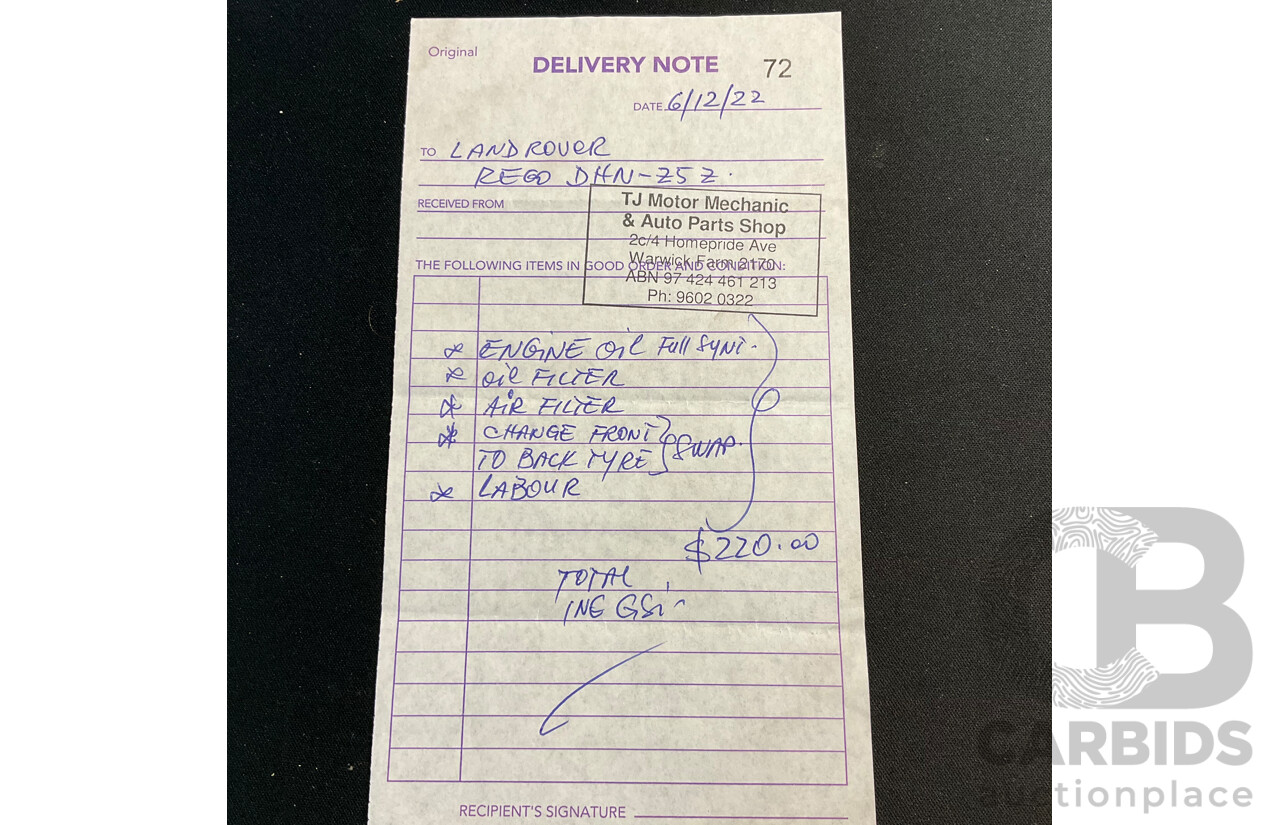 Original
DELIVERY NOTE 72
DATE 6/12/22
TO LANDROVER
REGO DHN-25Z.
RECEIVED FROM
TJ Motor Mechanic
& Auto Parts Shop
2c/4 Homepride Ave
Warwick Farm 2170
ABN 97 424 461 213
Ph: 9602 0322
THE FOLLOWING ITEMS IN GOOD ORDER AND CONDITION:
* ENGINE OIL Full SYNT.
* OIL FILTER
* AIR FILTER
* CHANGE FRONT
TO BACK TYRE } SWAP.
* LABOUR
$220.00
TOTAL
RECIPIENT'S SIGNATURE
CARBIDS
auctionplace